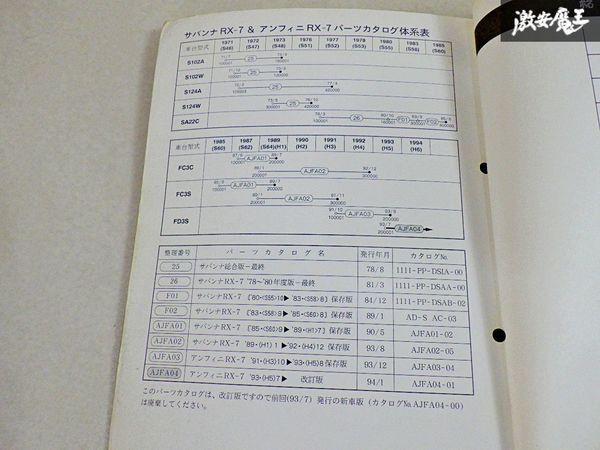 激安魔王
サバンナRX-7 & アンフィニRX-7パーツカタログ体系表
車台型式 1971 (S46) 1972 (S47) 1973 (S48) 1976 (S51) 1977 (S52) 1978 (S53) 1980 (S55) 1983 (S58) 1985 (S60)
S102A 25
S102W 25
S124A 25
S124W 25
SA22C 26 F01 F02
車台型式 1985 (S60) 1987 (S62) 1989 (S64)(H1) 1990 (H2) 1991 (H3) 1992 (H4) 1993 (H5) 1994 (H6)
FC3C AJFA01 AJFA02
FC3S AJFA01 AJFA02
FD3S AJFA03 AJFA04
整理番号 パーツカタログ名 発行年月 カタログNo.
25 サバンナ総合版-最終 78/8 1111-PP-DSIA-00
26 サバンナRX-7 '78〜'80年度版-最終 81/3 1111-PP-DSAA-00
F01 サバンナRX-7 〔'80・<S55>10▶'83・<S58>8〕保存版 84/12 1111-PP-DSAB-02
F02 サバンナRX-7 〔'83・<S58>9▶'85・<S60>8〕保存版 89/1 AD-S AC-03
AJFA01 サバンナRX-7 〔'85・<S60>9▶'89・<H1>7〕保存版 90/5 AJFA01-02
AJFA02 サバンナRX-7 '89・(H1)1▶'92・(H4)12 保存版 93/8 AJFA02-05
AJFA03 アンフィニRX-7 '91・(H3)10▶'93・(H5)8保存版 93/12 AJFA03-04
AJFA04 アンフィニRX-7 '93・(H5)7▶ 改訂版 94/1 AJFA04-01
このパーツカタログは、改訂版ですので前回(93/7)発行の新車版(カタログNo.AJFA04-00)
は廃棄してください。